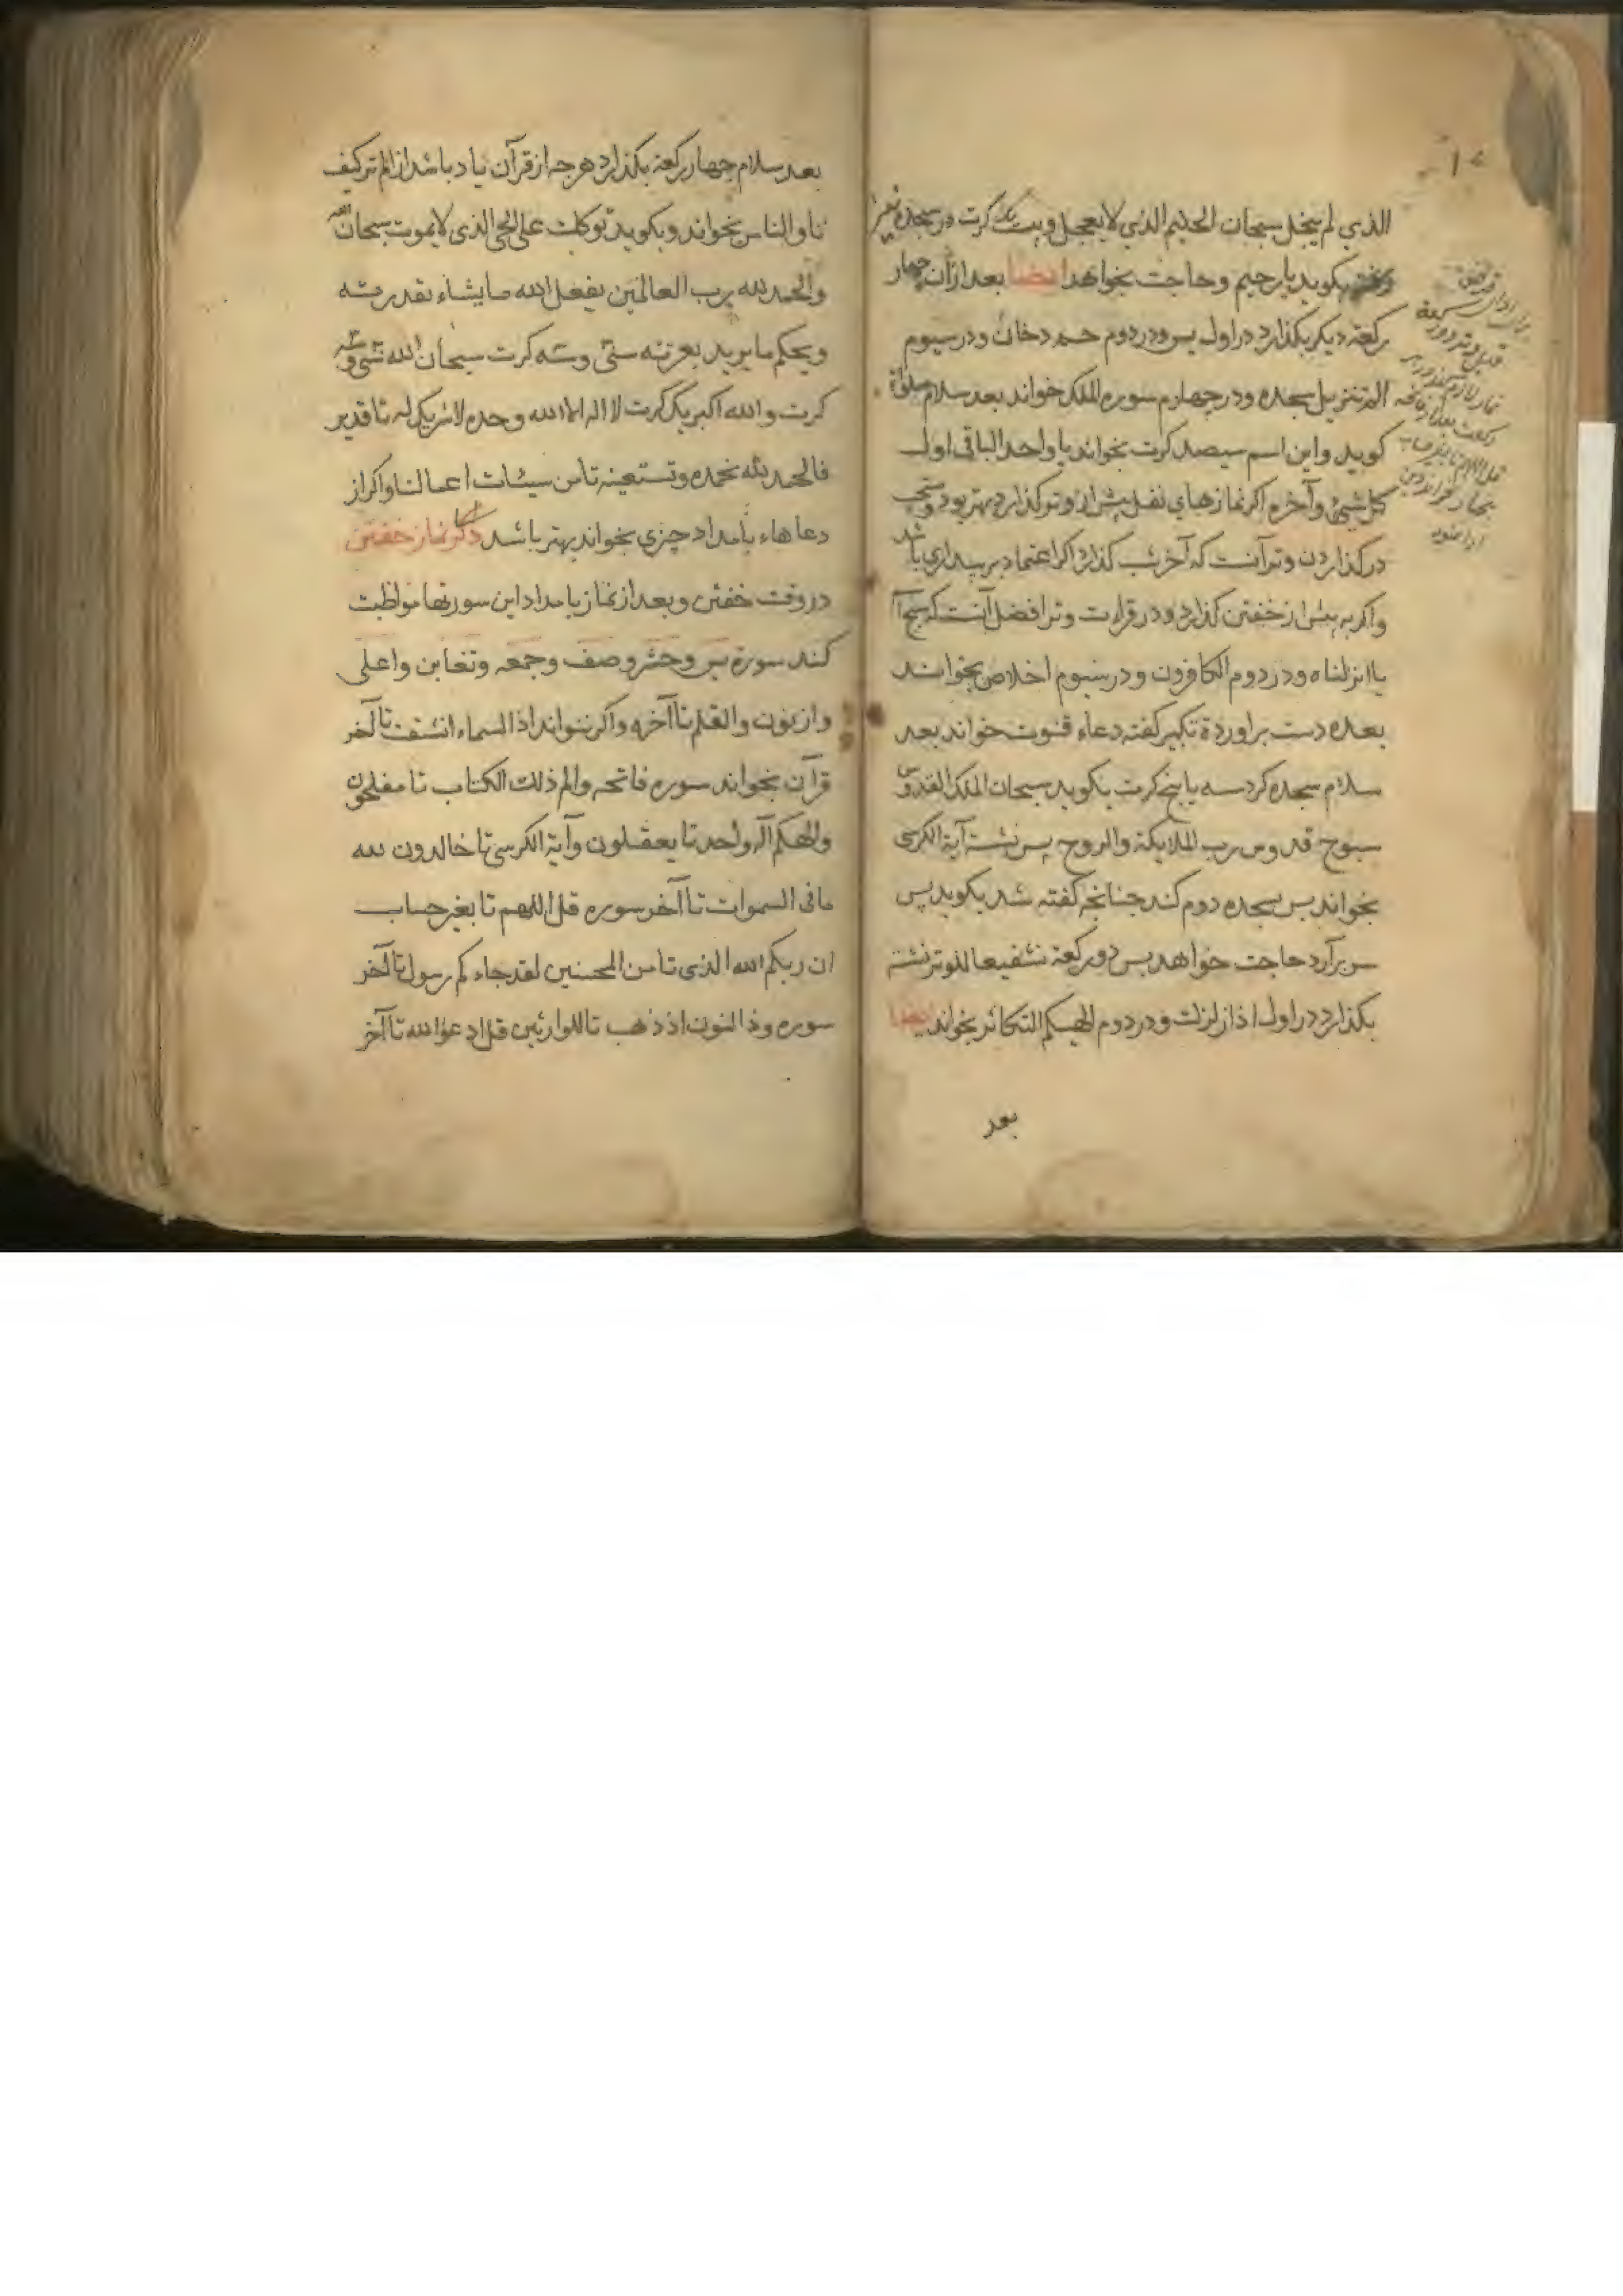 الذي لم يبخل سبحان الحليم الذي لا يعجل وبيت يك كرت در سجده
بكويد يا رحيم وحاجت بخواهد ايضا بعد از ان چهار
ركعة ديكر بكذارد در اول يس ودر دوم حم دخان ودر سيوم
الم تنزيل سجده ودر چهارم سوره الملك خواند بعد سلام صلوة
كويد واين اسم سيصد كرت بخواند يا واحد الباقي اول
كل شيئ وآخره اكر نمازهاي نفل پيش از وتر كذارد بهتر بود ومستحب
در كذاردن وتر آنست كه آخر شب كذارد اكر اعتماد بر بيداري باشد
واكر نه پيش از خفتن كذارد ودر قراءت وتر افضل آنست كه
يا انزلناه ودر دوم الكافرون ودر سيوم اخلاص بخوانند
بعده دست براورده تكبير كفته دعاء قنوت خواند بعد
سلام سجده كرد سه يا پنج كرت بكويد سبحان الملك القدوس
سبوح قدوس رب الملايكة والروح پس نشسته آية الكرسى
بخواند پس سجده دوم كند چنانچه كفته شد بكويد پس
سر برآرد حاجت خواهد پس دو ركعة تشفيعا للوتر نشسته
بكذارد در اول اذا زلزلت ودر دوم الهيكم التكاثر بخواند ايضا
بعد
بعد سلام چهار ركعة بكذارد هرچه از قرآن ياد باشد از الم تر كيف
تا والناس بخواند وبكويد توكلت على الحى الذى لا يموت سبحان الله
والحمد لله رب العالمين يفعل الله ما يشاء بقدرته
ويحكم ما يريد بعزته سى وسه كرت سبحان الله سى وسه
كرت والله اكبر يك كرت لا اله الا الله وحده لا شريك له تا قدير
فالحمد لله نحمده ونستعينه تا من سيئات اعمالنا واكر از
دعاهاء بامداد چيزى بخواند بهتر باشد ذكر نماز خفتن
در وقت خفتن وبعد از نماز بامداد اين سورتها مواظبت
كند سورة يس وحشر وصف وجمعه وتغابن واعلى
واز نون والقلم تا آخره واكر نتواند اذا السماء انشقت تا آخر
قرآن بخواند سوره فاتحه والم ذلك الكتاب تا مفلحون
والهكم اله واحد تا يعقلون وآية الكرسى تا خالدون لله
ما فى السموات تا آخر سوره قل اللهم تا بغير حساب
ان ربكم الله الذى تا من المحسنين لقد جاءكم رسول تا آخر
سوره وذا النون اذ ذهب تا الوارثين قل ادعوا الله تا آخر